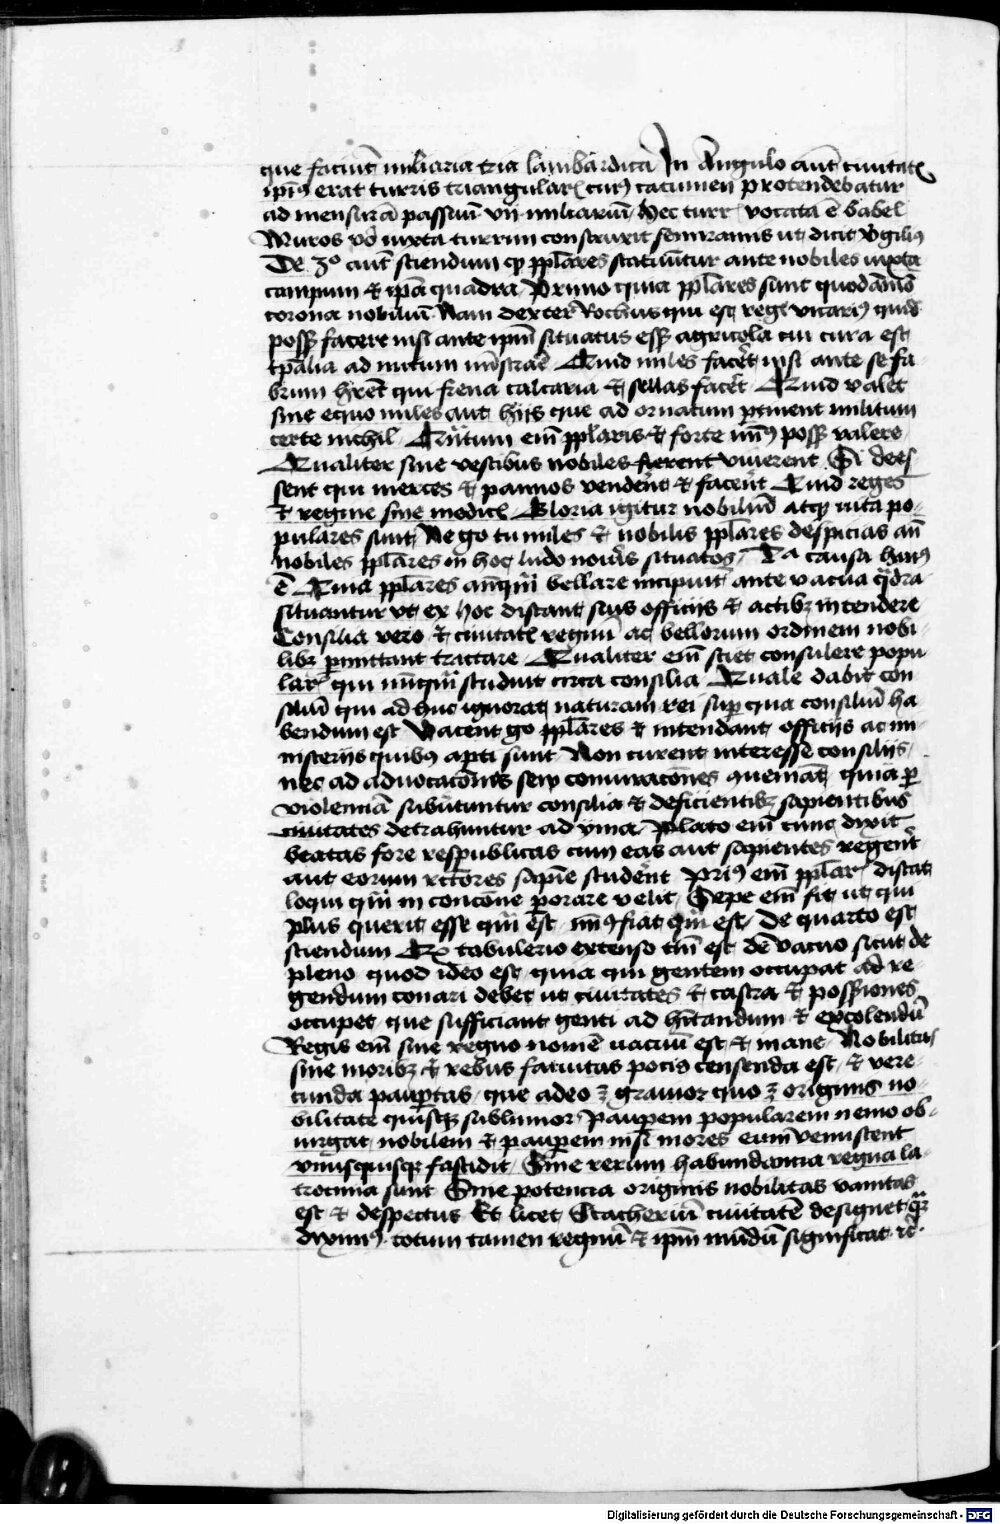 que faciūt miliaria tria lambardica In Angulo aūt ciuitatꝭ
ip̄iꝰ erat turris triangularꝭ cuiꝰ cacumen protendebatur
ad mensurā passuū vii miliariū hec turrꝭ vocata ē babel
Muros v̊o iuxta turrim construxit semiramis ut dicit v̓giliꝰ
De 3º aūt sciendum ꝙ pp̄lares statuūtur ante nobiles iuxta
campum et ip̄a quadra Primo quia pp̄lares sunt quodāmō
corona nobiliū Nam dexter Rochus qui est regꝭ vicariꝰ quid
poss; facere nisi ante ip̄m situatus ess; agricola cui cura est
tp̄alia ad nutum mīstrare Quid miles facēt nisi ante se fa
brum hr̄et qui frena calcaria et sellas facēt Quid valet
sine equo miles aut hijs que ad ornatum ꝑtinent militum
certe nichil Tm̄tum em̄ pp̄laris et forte minꝰ poss; valere
Qualiter sine vestibus nobiles fierent viuerent Si dees
sent qui merces et pannos vendēt et facēt Quid reges
et regine sine medicꝭ Gloria igitur nobiliū atqꝫ uita po
pulares sunt Ne go tu miles et nobilis pp̄lares despicias an̄
nobiles pp̄lares in hoc ludo nou̓is situatos Tª causa huiꝰ
ē Quia pp̄lares antq̄m bellare incipiūt ante vacua q̄dra
situantur ut ex hoc discant suis officijs et actibꝫ intendere
Consilia vero et ciuitatꝭ regimē ac bellorum ordinem nobi
libꝫ ꝑmittant tractare Qualiter em̄ sciet consulere popu
larꝭ qui nūq̄m studuit circa consilia Quale dabit con
siliū qui ad huc ignorat naturam rei suꝑ qua consiliū ha
bendum est Vacent go pp̄lares et intendant officijs ac mi
nisterijs quibꝰ apti sunt Non curent interesse consilijs
nec ad aduocacōnes seu coniuracōnes ꝯueniāt quia ꝑ
violenciā subūtuntur consilia et deficientibꝫ sapientibus
ciuitates detrahuntur ad yma Plato em̄ tunc dixit
beatas fore respublicas cum eas aut sapientes regerēt
aut eorum rectores sapīe studēnt Priꝰ em̄ pp̄larꝭ discat
loqui q̄m in concōne ꝑorare velit Sepe em̄ fit ut qui
plus querit esse q̄m est minꝰ fiat q̄m est De quarto est
sciendum Qꝫ tabulerio extenso tm̄ est de vacuo sicut de
pleno quod ideo est quia qui gentem occupat ad re
gendum conari debet ut ciuitates et castra et poss̄iones
occupet que sufficiant genti ad hītandum et excolendū
Regis em̄ sine regno nomē uacuū est et inane Nobilitas
sine moribꝫ et rebus fatuitas pocis censenda est et vere
cunda pauꝑtas que adeo ē grauior quo ē originis no
bilitate quisqꝫ sublimior Pauꝑem popularem nemo ob
iurgat nobilem et pauꝑem nisi mores eum venustent
vnusquisqꝫ fastidit Sine rerum habundancia regna la
trocinia sunt Sine potencia originis nobilitas vanitas
est et despectus Et licet Stacheriū ciuitatē designet q̄m
diximꝰ totum tamen regnū et ip̄m mūdū significat ꝛc̄
Digitalisierung gefördert durch die Deutsche Forschungsgemeinschaft - DFG